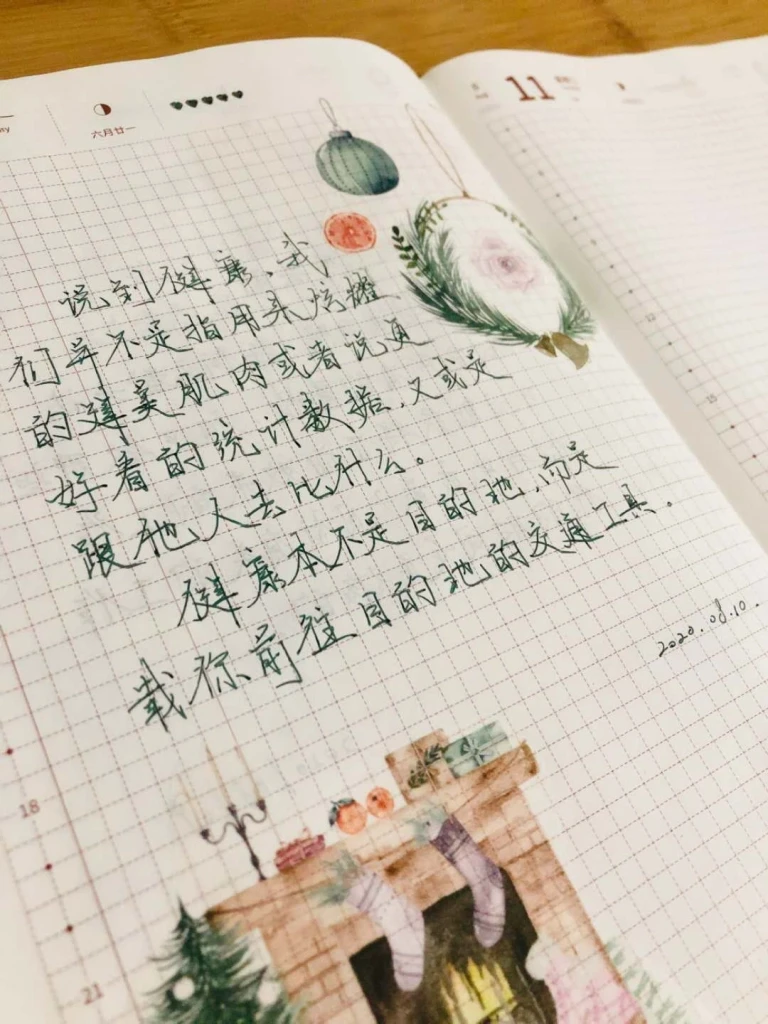 六月廿一
11
说到健康，我
们并不是指用来炫耀
的健美肌肉或者说更
好看的统计数据，又或是
跟他人去比什么。
健康本不是目的地，而是
载你前往目的地的交通工具。
2020.08.10.
18
21